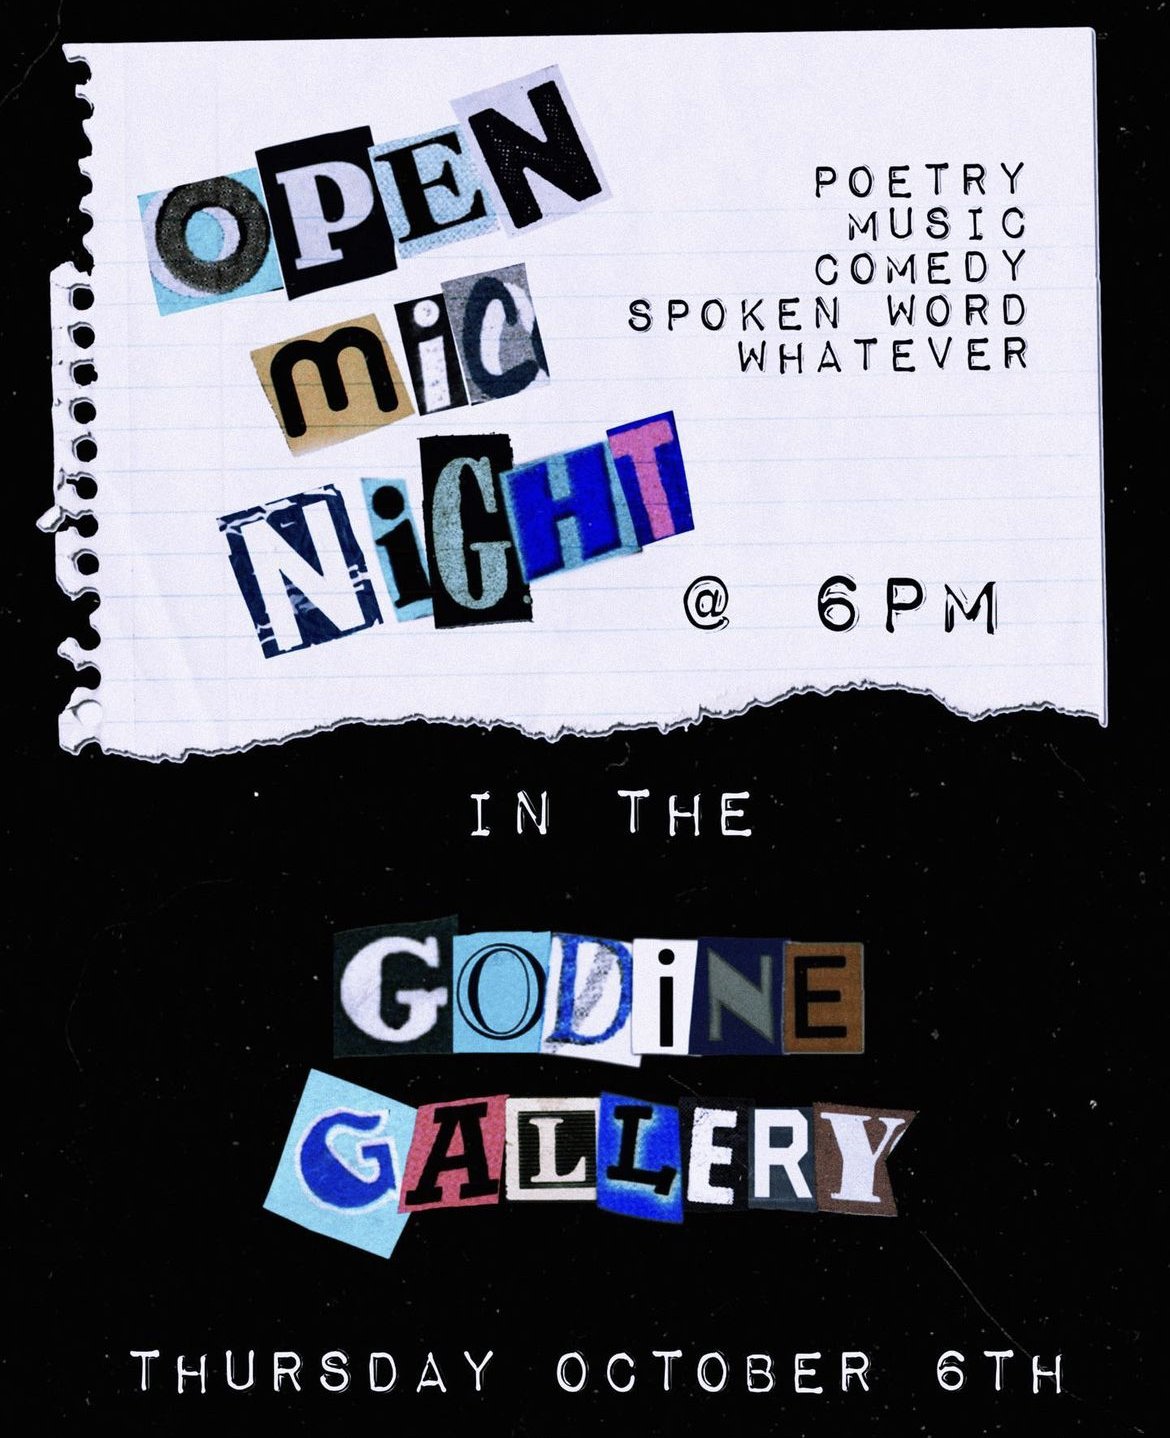 OPEN
MiC
NiGHT
POETRY
MUSIC
COMEDY
SPOKEN WORD
WHATEVER
@ 6PM
IN THE
GODiNE
GALLERY
THURSDAY OCTOBER 6TH